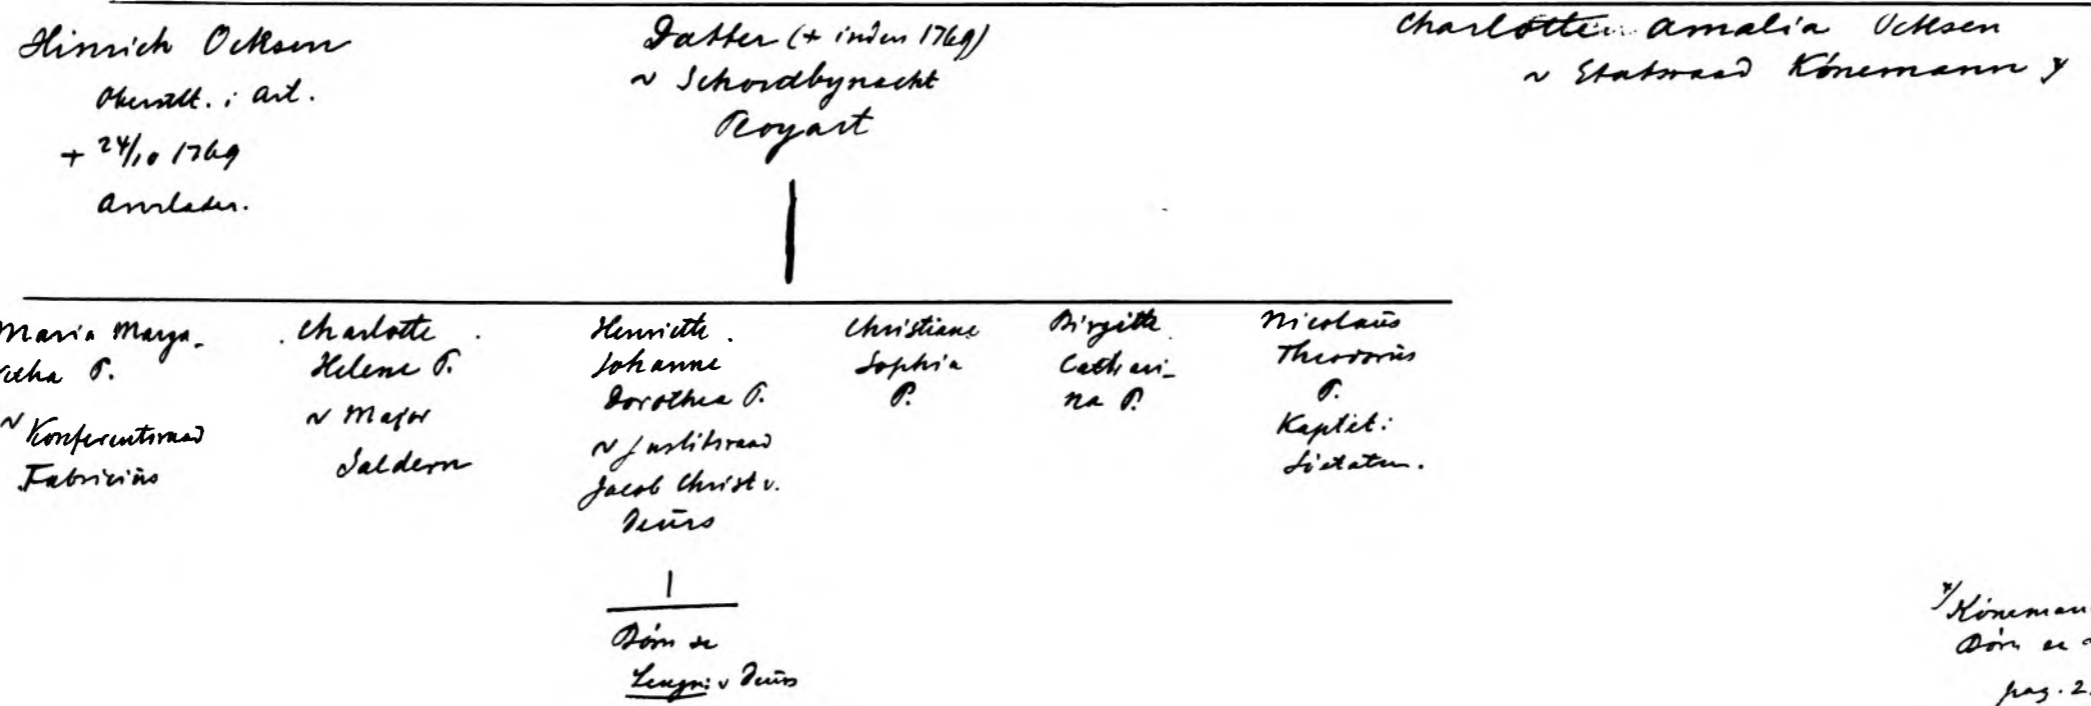 Hinrich Ocksen
Oberstlt. i Art.
+ 24/10 1769
Datter (+ inden 1769)
~ Schoutbynacht
Peyart
Charlotte Amalia Ocksen
~ Etatsraad Könemann x
Maria Marga-
retha P.
~ Konferentsraad
Fabricius
Charlotte
Helene P.
~ Major
Saldern
Henriette
Johanne
Dorothea P.
~ Justitsraad
Jacob Christ v.
Deurs
Børn se
v Deurs
Christiane
Sophia
P.
Birgitte
Cathari-
na P.
Nicolaus
Theodorus
P.
Kaptit:
x/ Könemann
Børn se
pag. 2.